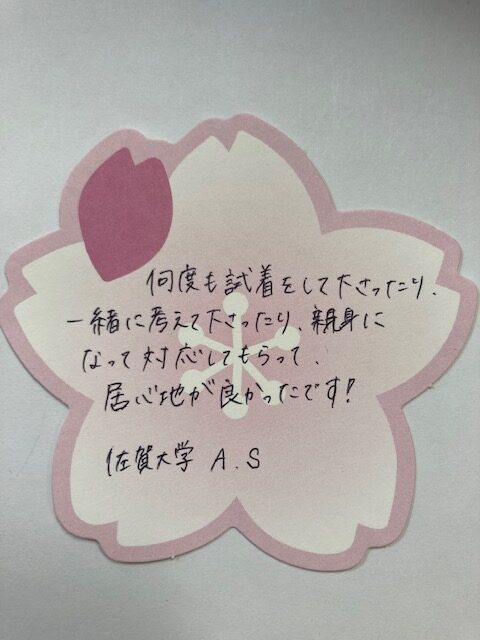 何度も試着をして下さったり、
一緒に考えて下さったり、親身に
なって対応してもらって、
居心地が良かったです!
佐賀大学 A.S